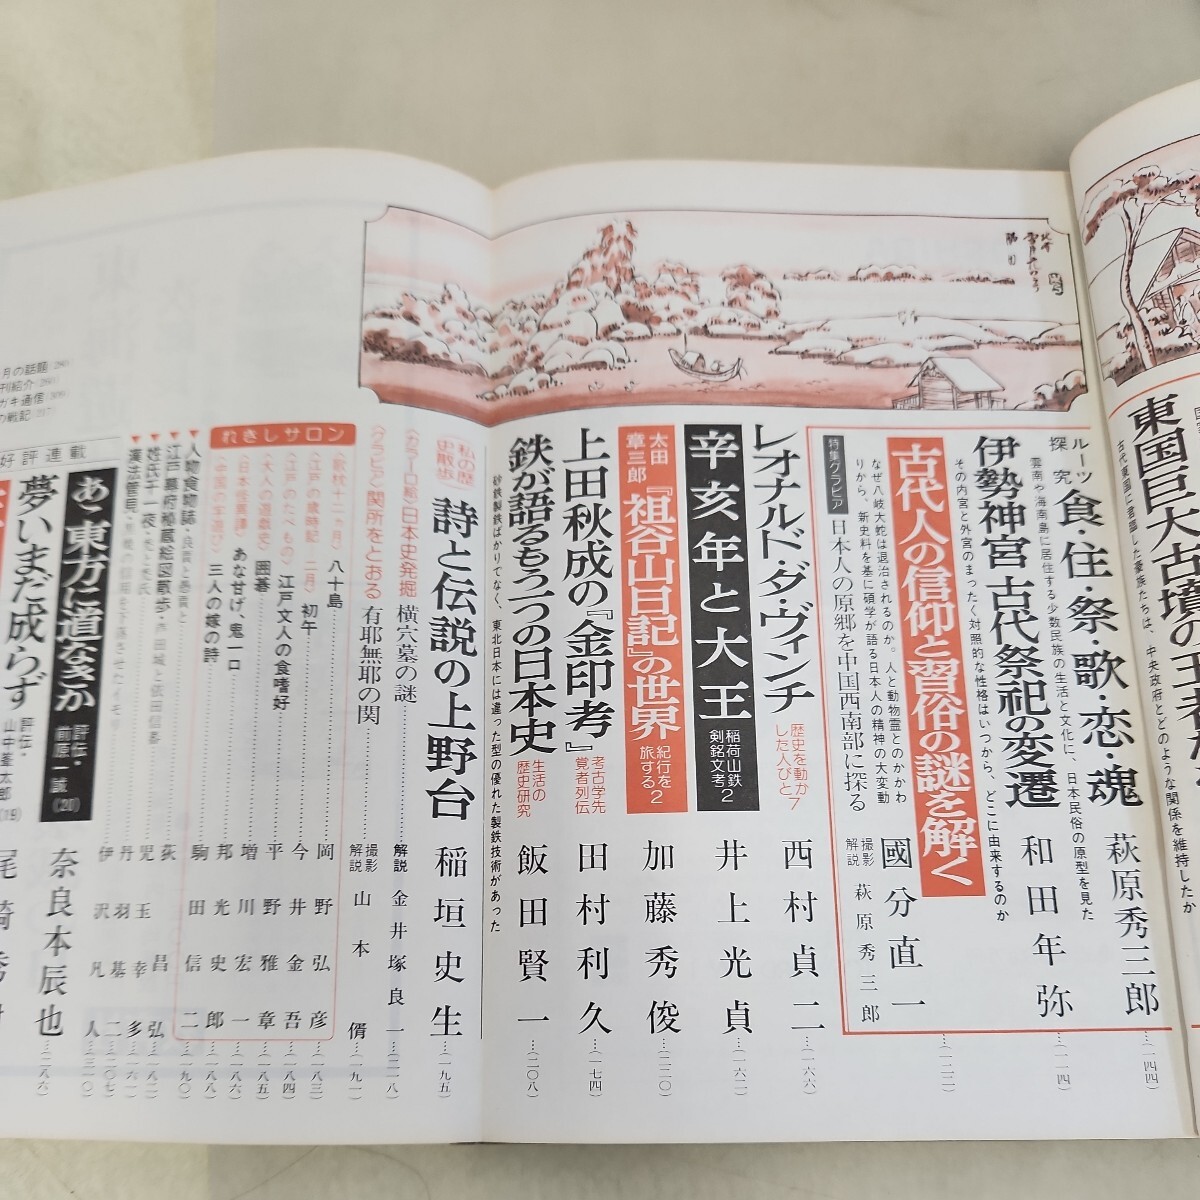 東国巨大古墳の王者
古代東国に君臨した豪族たちは、中央政府とどのような関係を維持したか
ルーツ探究
食・住・祭・歌・恋・魂
萩原秀三郎
…(一四四)
雲南や海南島に居住する少数民族の生活と文化に、日本民俗の原型を見た
伊勢神宮古代祭祀の変遷
和田年弥
…(一一四)
その内宮と外宮のまったく対照的な性格はいつから、どこに由来するのか
古代人の信仰と習俗の謎を解く
國分直一
…(一二二)
なぜ八岐大蛇は退治されるのか。人と動物霊とのかかわりから、新史料を基に碩学が語る日本人の精神の大変動
特集グラビア
日本人の原郷を中国西南部に探る
撮影
解説
萩原秀三郎
レオナルド・ダ・ヴィンチ
歴史を動かした人びと7
西村貞二
…(一六六)
辛亥年と大王
稲荷山鉄剣銘文考2
井上光貞
…(一六二)
太田章三郎
『祖谷山日記』の世界
紀行を旅する2
加藤秀俊
…(二二〇)
上田秋成の『金印考』
考古学先覚者列伝
田村利久
…(一七四)
鉄が語るもう一つの日本史
生活の歴史研究
飯田賢一
…(二〇八)
砂鉄製鉄ばかりでなく、東北日本には違った型の優れた製鉄技術があった
私の歴史散歩
詩と伝説の上野台
稲垣史生
…(一九五)
〈カラー口絵〉日本史発掘
横穴墓の謎
解説
金井塚良一
…(二一八)
〈グラビア〉関所をとおる
有耶無耶の関
撮影
解説
山本偦
…(一九一)
れきしサロン
〈歌枕十二ヵ月〉
八十島
岡野弘彦
…(一八三)
〈江戸の歳時記 二月〉
初午
今井金吾
…(一八四)
〈江戸のたべもの〉
江戸文人の食嗜好
平野雅章
…(一八五)
〈大人の遊戯史〉
囲碁
増川宏一
…(一八六)
〈日本怪異譚〉
あな甘げ、鬼一口
邦光史郎
〈中国の年遊び〉
三人の嫁の詩
駒田信二
…(一九〇)
▼人物食物誌・
▼江戸幕府秘蔵絵図散歩・
荻昌弘
▼姓氏千一夜・
児玉幸多
丹羽基二
…(二〇七)
伊沢凡人
…(三一〇)
好評連載
あゝ東方に道なきか
評伝・前原一誠(20)
奈良本辰也
…(二八六)
夢いまだ成らず
評伝・山中峯太郎(19)
尾崎秀樹
月の話題
刊紹介
ガキ通信
の戦記